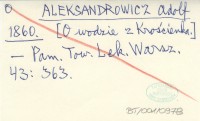 0
ALEKSANDROWICZ Adolf
1860. [O wodzie z Krościenka.]
— Pam. Tow. Lek. Warsz.
43: 363.